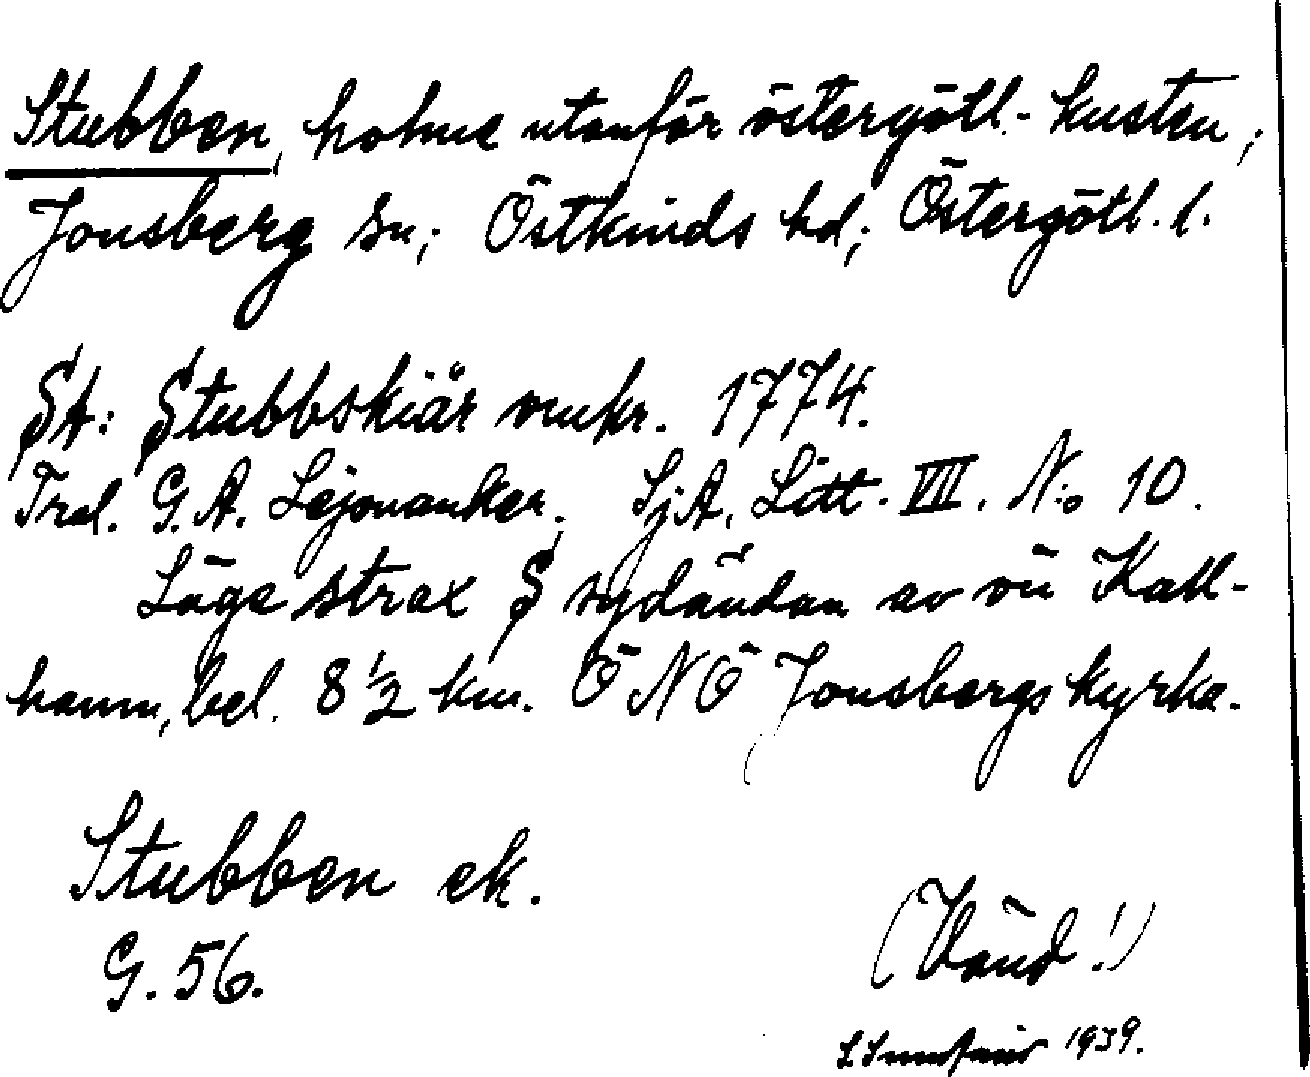 Stubben, holme utanför östergötl.-kusten;
Jonsberg sn; Östkinds hd; Östergötl. l.
St: Stubbskiär omkr. 1774.
Trol. G. A. Lejonanker. SjA, Litt. VII. N:o 10.
Läge strax S sydändan av ön Kall-
hamn, bel. 8 1/2 km. ÖNÖ Jonsbergs kyrka.
Stubben ek.
G. 56.
(Vänd!)
1939.